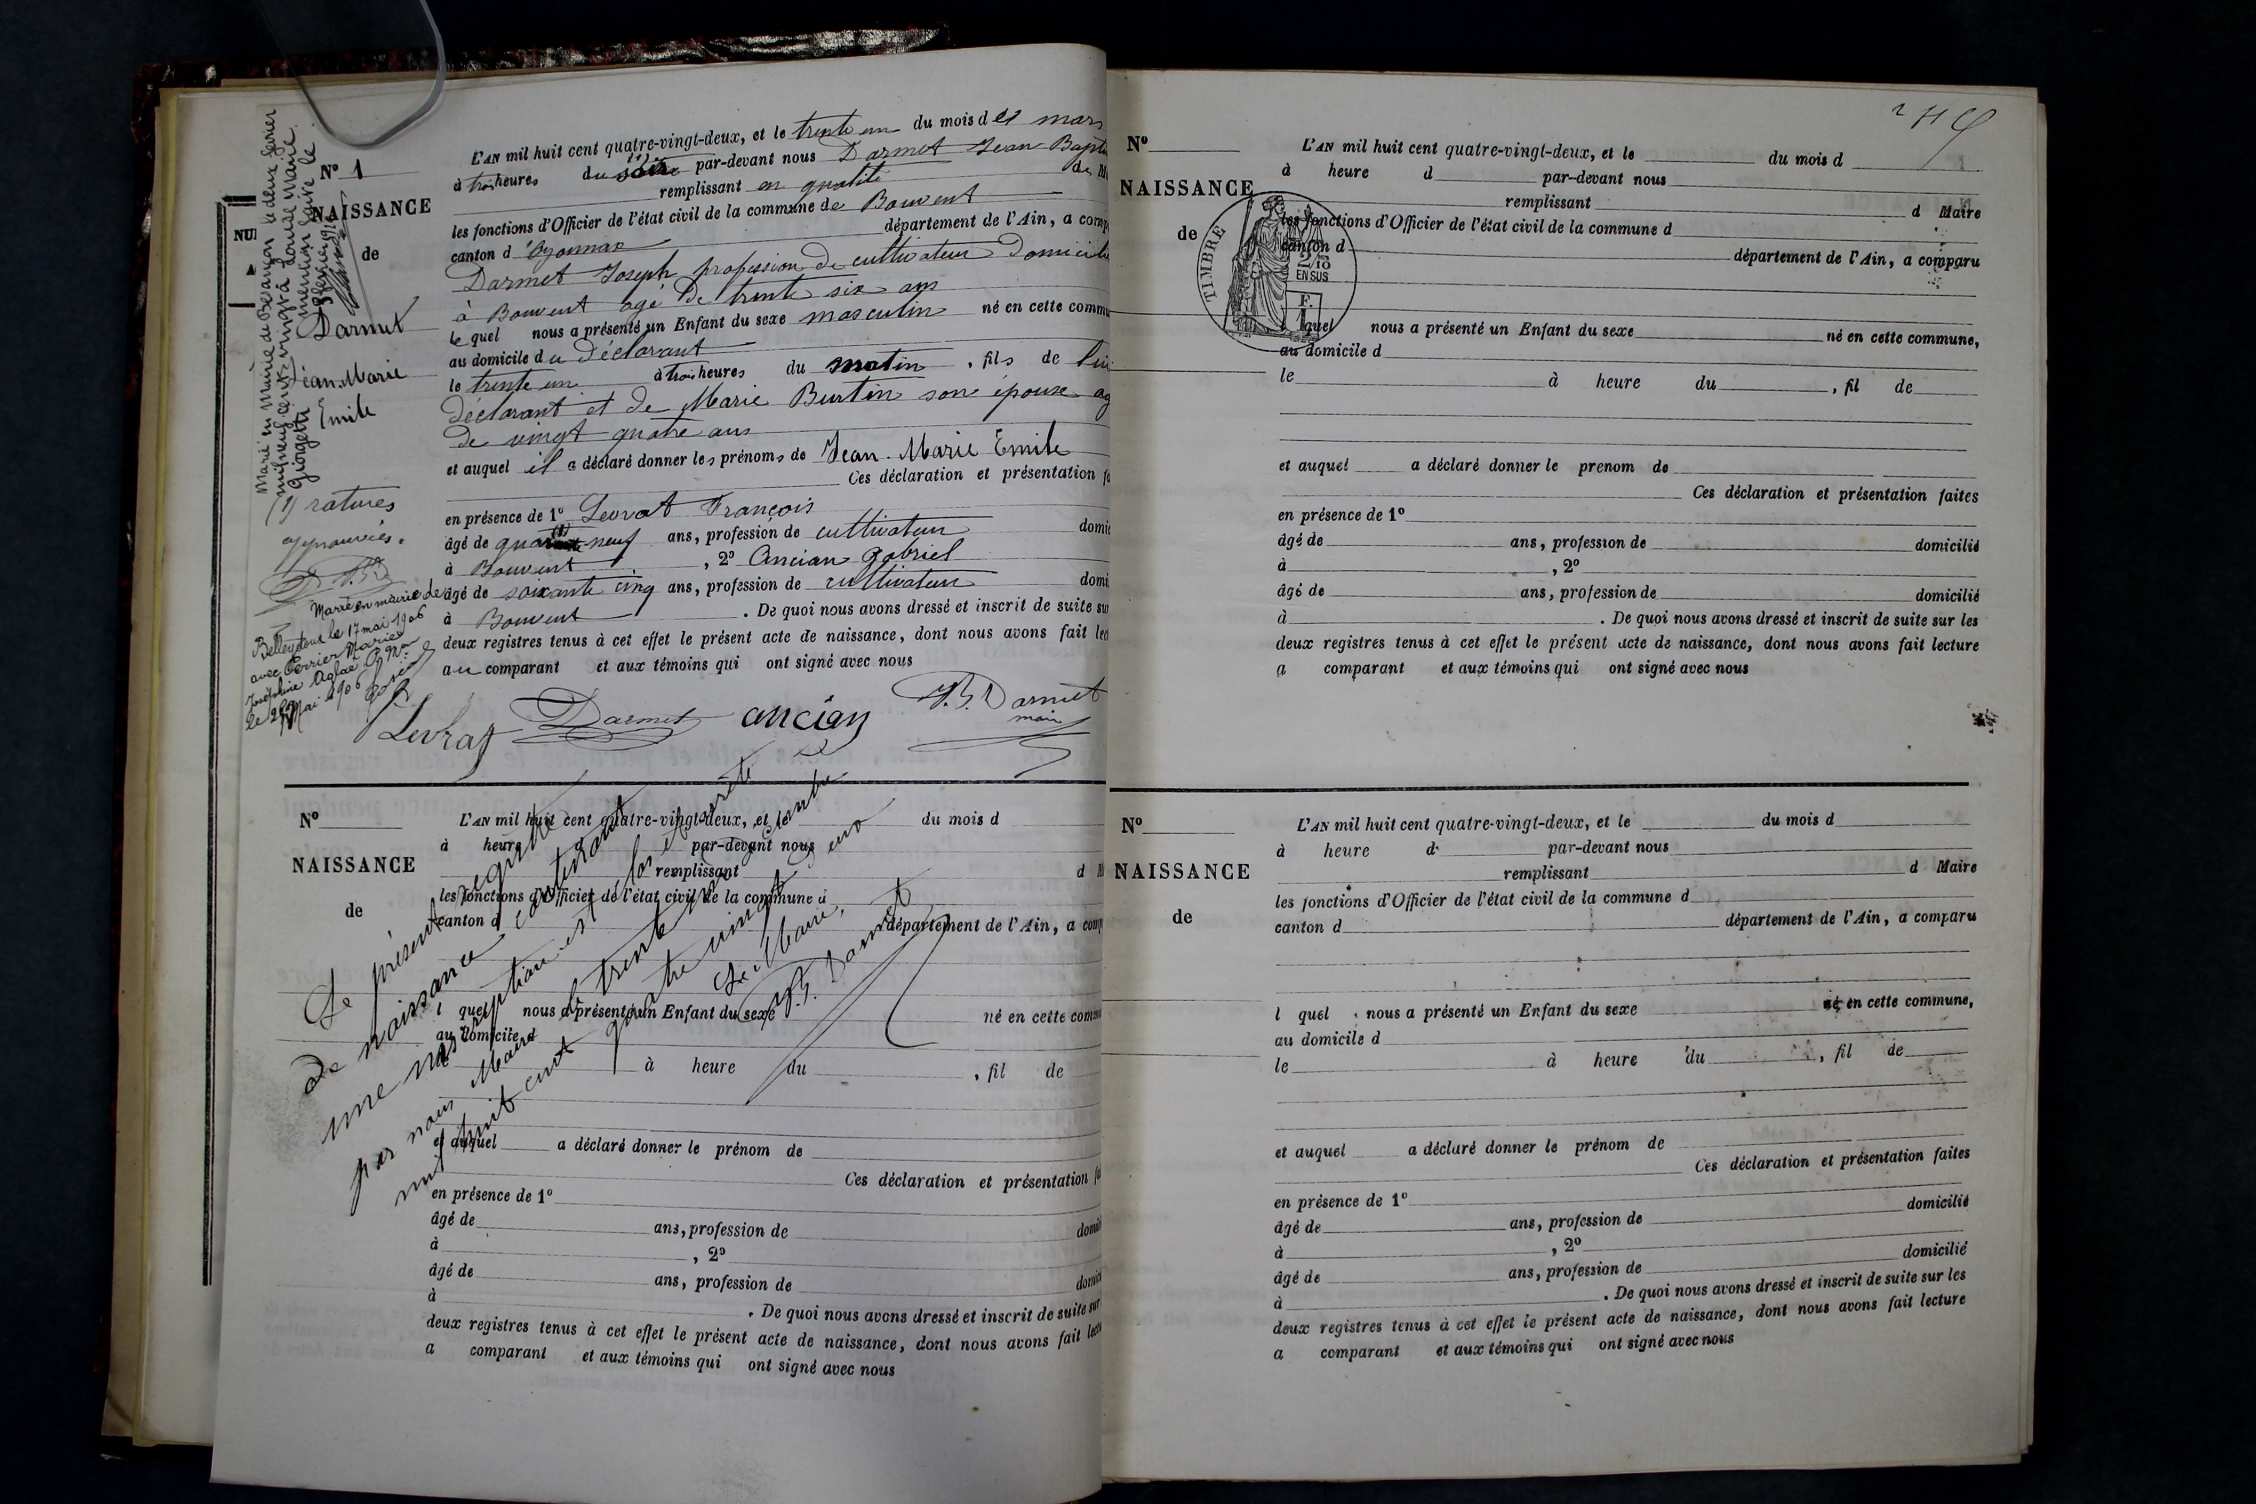 N° 1
NAISSANCE
de
Darmet
Jean Marie
Emile
(1) ratures
approuvées.
Marié en mairie de Besançon le deux février
mil neuf cent vingt à
Giorgetti
mention faite le
Marié en mairie de
Belleydoux le 17 mai 1906
avec Perrier Marie
Joséphine Aglaé
le 20 Mai 1906
L'AN mil huit cent quatre-vingt-deux, et le trente un du mois de mars
à trois heures du soir par-devant nous Darmet Jean Bapti
remplissant en qualité de M
les fonctions d'Officier de l'état civil de la commune de Bouvent
canton d'Oyonnax département de l'Ain, a comp
Darmet Joseph profession de cultivateur Domicilié
à Bouvent agé de trente six ans
le quel nous a présenté un Enfant du sexe masculin né en cette commu
au domicile du Déclarant
le trente un à trois heures du matin, fils de lui
déclarant et de Marie Burtin son épouse ag
de vingt quatre ans
et auquel il a déclaré donner les prénoms de Jean-Marie Emile
Ces déclaration et présentation fa
en présence de 1° Levrat François
âgé de neuf ans, profession de cultivateur domic
à Bouvent, 2° Ancian Gabriel
âgé de soixante cinq ans, profession de cultivateur domi
à Bouvent. De quoi nous avons dressé et inscrit de suite sur
deux registres tenus à cet effet le présent acte de naissance, dont nous avons fait lec
au comparant et aux témoins qui ont signé avec nous
Levrat Darmet ancian J.B. Darmet
maire
N°
NAISSANCE
de
L'AN mil huit cent quatre-vingt-deux, et le du mois d
à heure par-devant nous
remplissant d M
les fonctions d'Officier de l'état civil de la commune d
canton d département de l'Ain, a comp
l quel nous a présenté un Enfant du sexe né en cette commu
au domicile d
à heure du, fil de
et auquel a déclaré donner le prénom de
Ces déclaration et présentation fa
en présence de 1°
âgé de ans, profession de domici
à, 2°
âgé de ans, profession de domici
à. De quoi nous avons dressé et inscrit de suite sur
deux registres tenus à cet effet le présent acte de naissance, dont nous avons fait lectu
a comparant et aux témoins qui ont signé avec nous
Le présent registre
de naissance contenant
une inscription est clos et arrêté
par nous Maire le trente un Décembre
mil huit cent quatre vingt deux
Le Maire,
J.B. Darmet
N°
NAISSANCE
de
TIMBRE
2/10
EN SUS
F.
1
L'AN mil huit cent quatre-vingt-deux, et le du mois d
à heure d par-devant nous
remplissant d Maire
les fonctions d'Officier de l'état civil de la commune d
canton d département de l'Ain, a comparu
l quel nous a présenté un Enfant du sexe né en cette commune,
au domicile d
le à heure du, fil de
et auquel a déclaré donner le prenom de
Ces déclaration et présentation faites
en présence de 1°
âgé de ans, profession de domicilié
à, 2°
âgé de ans, profession de domicilié
à. De quoi nous avons dressé et inscrit de suite sur les
deux registres tenus à cet effet le présent acte de naissance, dont nous avons fait lecture
a comparant et aux témoins qui ont signé avec nous
N°
NAISSANCE
de
L'AN mil huit cent quatre-vingt-deux, et le du mois d
à heure d par-devant nous
remplissant d Maire
les fonctions d'Officier de l'état civil de la commune d
canton d département de l'Ain, a comparu
l quel nous a présenté un Enfant du sexe né en cette commune,
au domicile d
le à heure du, fil de
et auquel a déclaré donner le prénom de
Ces déclaration et présentation faites
en présence de 1° domicilié
âgé de ans, profession de
à, 2° domicilié
âgé de ans, profession de
à. De quoi nous avons dressé et inscrit de suite sur les
deux registres tenus à cet effet le présent acte de naissance, dont nous avons fait lecture
a comparant et aux témoins qui ont signé avec nous